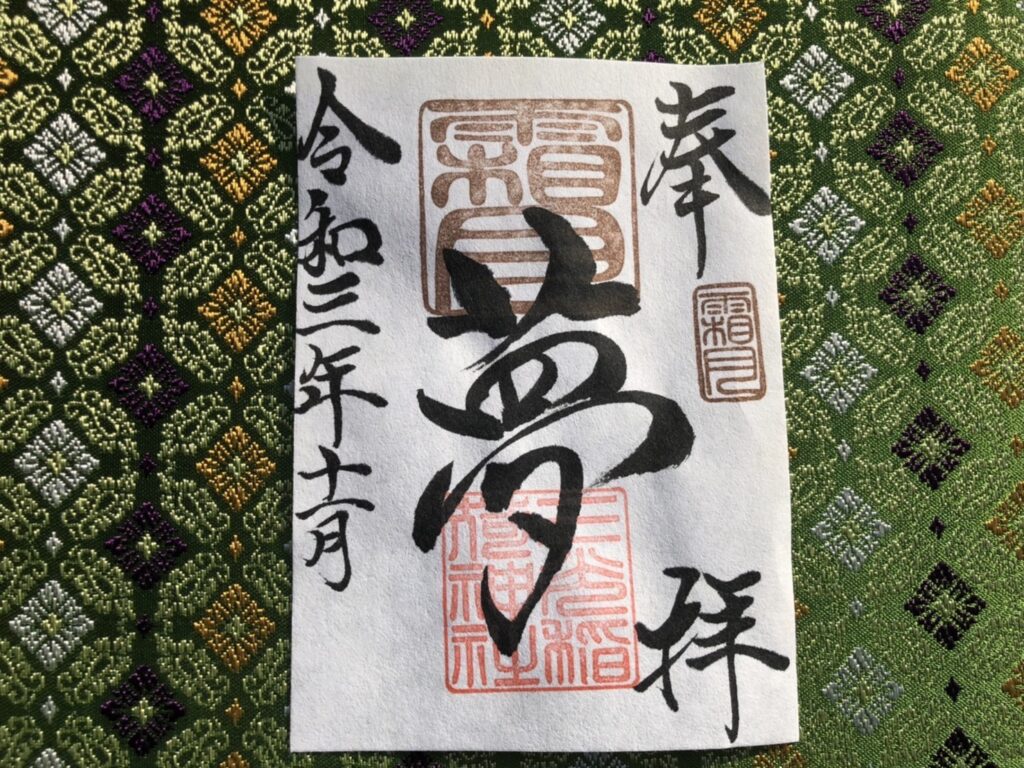 奉拝
霜月
霜月
夢
三光稲荷神社
令和三年十一月